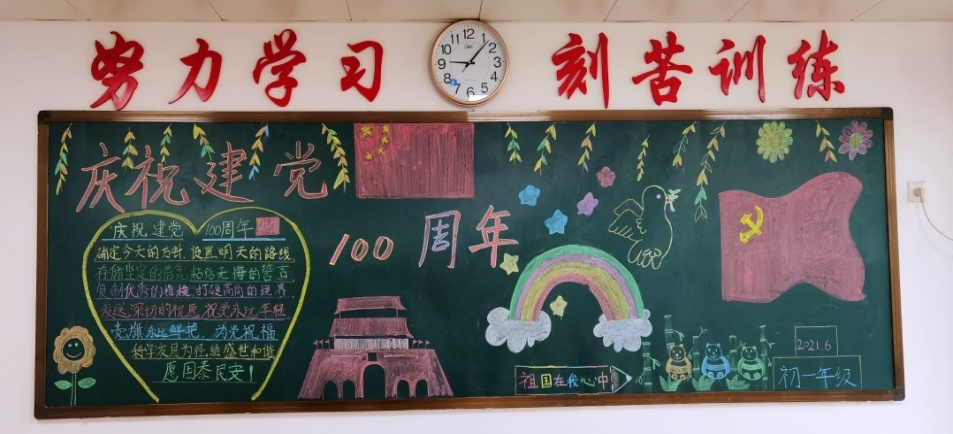 努力学习
刻苦训练
12
1
2
3
4
5
6
7
8
9
10
11
庆祝建党
100周年
庆祝建党 100周年
确定今天的方针,设置明天的路线
存储坚定的信念,粘贴无悔的誓言
复制优秀的楷模,打硬高尚的境界
发送深切的祝愿,祝党永远年轻
党旗永远鲜艳,为党祝福
科学发展为你,绘盛世和谐
愿国泰民安!
祖国在我心中
2021.6
初一年级